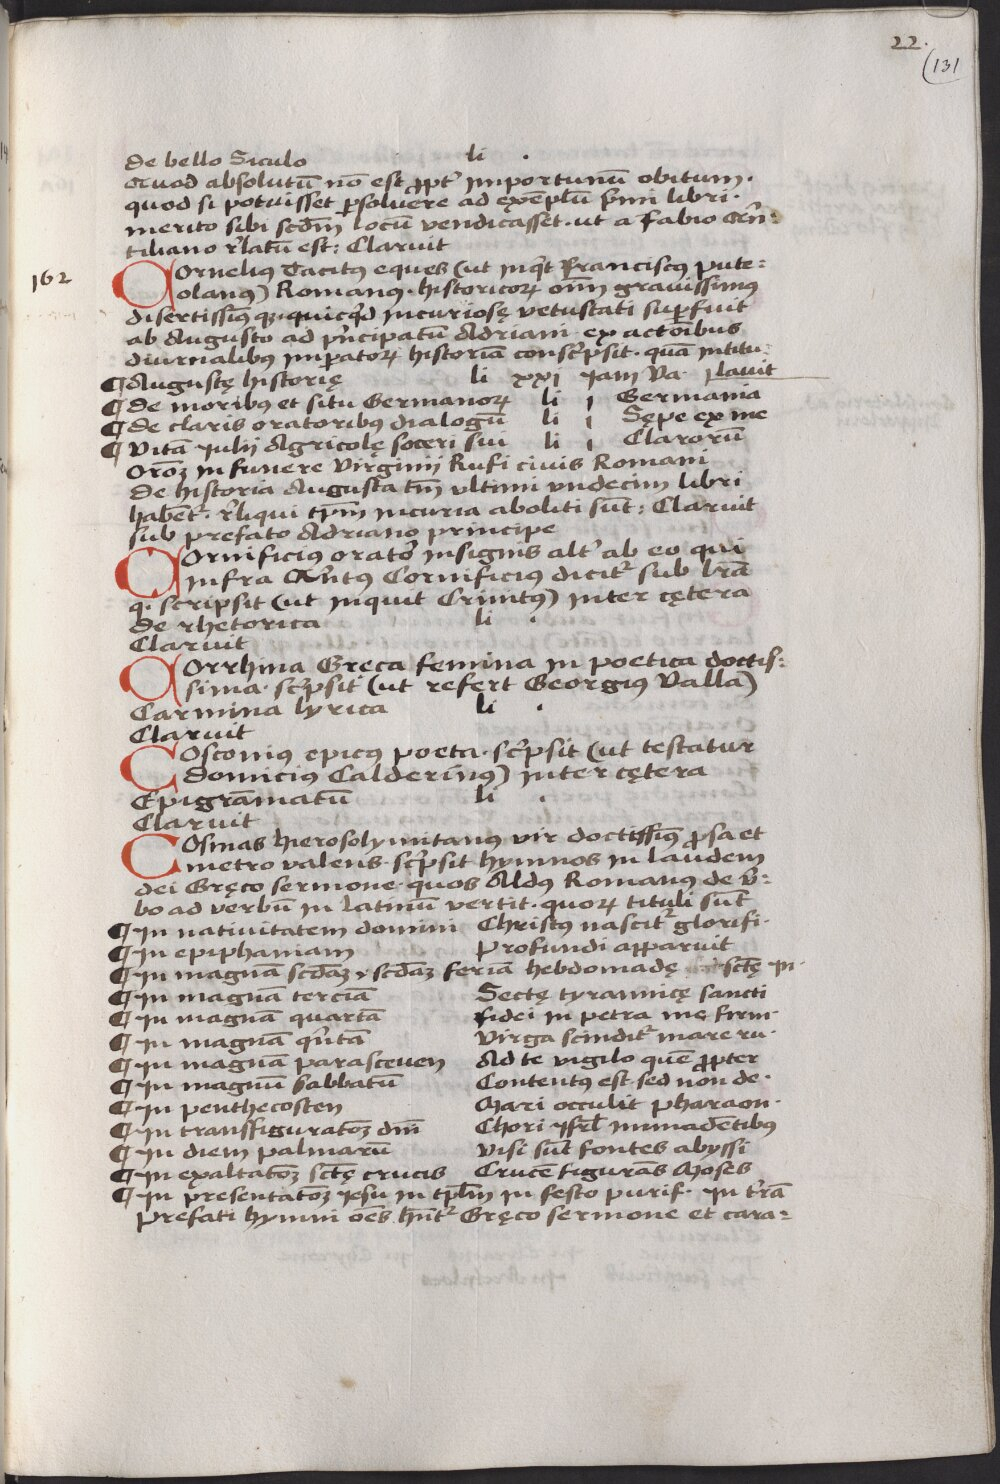 22.
(131
de bello Siculo li .
Quod absolutū nō est ꝓpt' importunū obitum.
quod si potuisset ꝑsoluere ad exēplū p̄mi libri.
merito sibi scdm̄ locū vendicasset. ut a Fabio Qn̄:
tiliano r̄latū est: Claruit
162
Cornelius Tacitꝰ eques (ut inq̄t Franciscꝰ pute:
olanꝰ) Romanꝰ. historicoꝝ om̄ grauissimꝰ
disertissimꝰ qꝫ. quicq̄d incuriosę vetustati suꝑfuit
ab Augusto ad pn̄cipatū Adriani. ex actoībus
diurnalibꝰ imꝑatoꝝ historiā consc̄psit. quā intitu-
lauit
¶ Augustę historię li xxi Iam Va.
¶ De moribꝰ et situ Germanoꝝ li i Germania
¶ De claris oratoribꝰ dialogū li i Sępe ex me
¶ Vitā Iulij Agricolę soceri sui li i Clarorū
Orōꝫ in funere Virginij Rufi ciuis Romani
De historia Augusta tm̄ vltimi vndecim libri
habēt᷑. r̄liqui tpm̄ incuria aboliti sūt: Claruit
sub prefato Adriano principe
Cornificiꝰ orator̄ insignis alt' ab eo qui
infra Qn̄tꝰ Cornificiꝰ dicit᷑ sub l̄rā
q. scripsit (ut inquit Crinitꝰ) inter cętera
de rhetorica li .
Claruit
Corrhina Greca femina in poetica doctis:
sima. sc̄psit (ut refert Georgiꝰ Valla)
Carmina lyrica li .
Claruit
Cosconiꝰ epicꝰ poeta. sc̄psit (ut testatur
Domiciꝰ Calderinꝰ) inter cętera
Epigrāmatū li .
Claruit
Cosmas hierosolymitanꝰ vir doctissimꝰ ꝓsa et
metro valens. sc̄psit hymnos in laudem
dei Gręco sermone. quos Aldꝰ Romanꝰ de v̄:
bo ad verbū in latinū vertit. quoꝝ tituli sūt
¶ In natiuitatem domini Christꝰ nascit᷑ glorifi.
¶ In epiphaniam Profundi apparuit
¶ In magnā scdāꝫ feriā hebdomadę sctę In.
¶ In magnā terciā Sectę tyrannicę sancti
¶ In magnā quartā Fidei in petra me firm.
¶ In magnā qn̄tā Virga scindit᷑ mare ru.
¶ In magnā parasceuen Ad te vigilo quē ꝓpter
¶ In magnū sabbatū Contentꝰ est sed non de.
¶ In penthecosten Mari occulit pharaon.
¶ In transfiguratōꝫ dn̄i Chori isrl̄ inmadētibꝰ
¶ In diem palmarū Visi sūt fontes abyssi
¶ In exaltatōꝫ sctę crucis Crucē figurās Moses
¶ In presentatōꝫ iesu in tplm̄ in festo purif. In t̄rā
Prefati hymni oēs hn̄t᷑ Gręco sermone et cara: